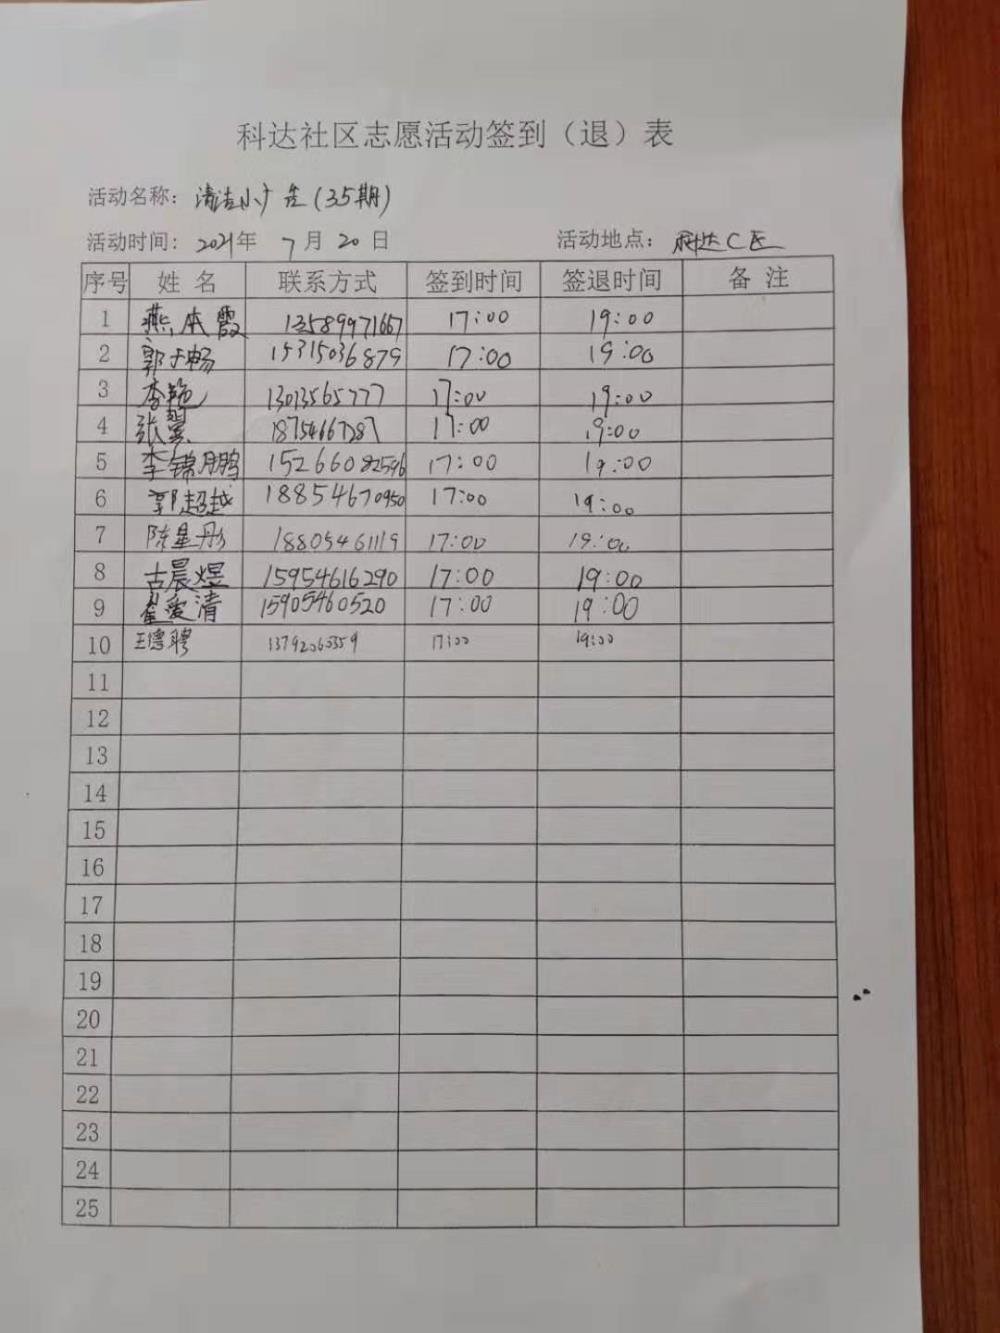 科达社区志愿活动签到（退）表
活动名称： 清洁小广告（35期）
活动时间： 2021年 7月 20日 活动地点： 科达C区
序号 姓名 联系方式 签到时间 签退时间 备注
1 燕本霞 13589971667 17:00 19:00
2 郭于畅 15315036879 17:00 19:00
3 李艳 13013565777 17:00 19:00
4 张翼 18754667287 17:00 19:00
5 李锦鹏 15266082596 17:00 19:00
6 郭超越 18854670950 17:00 19:00
7 陈星彤 18805461119 17:00 19:00
8 古晨煜 15954616290 17:00 19:00
9 翟爱清 15905460520 17:00 19:00
10 王德聘 13792060559 17:00 19:00
11
12
13
14
15
16
17
18
19
20
21
22
23
24
25